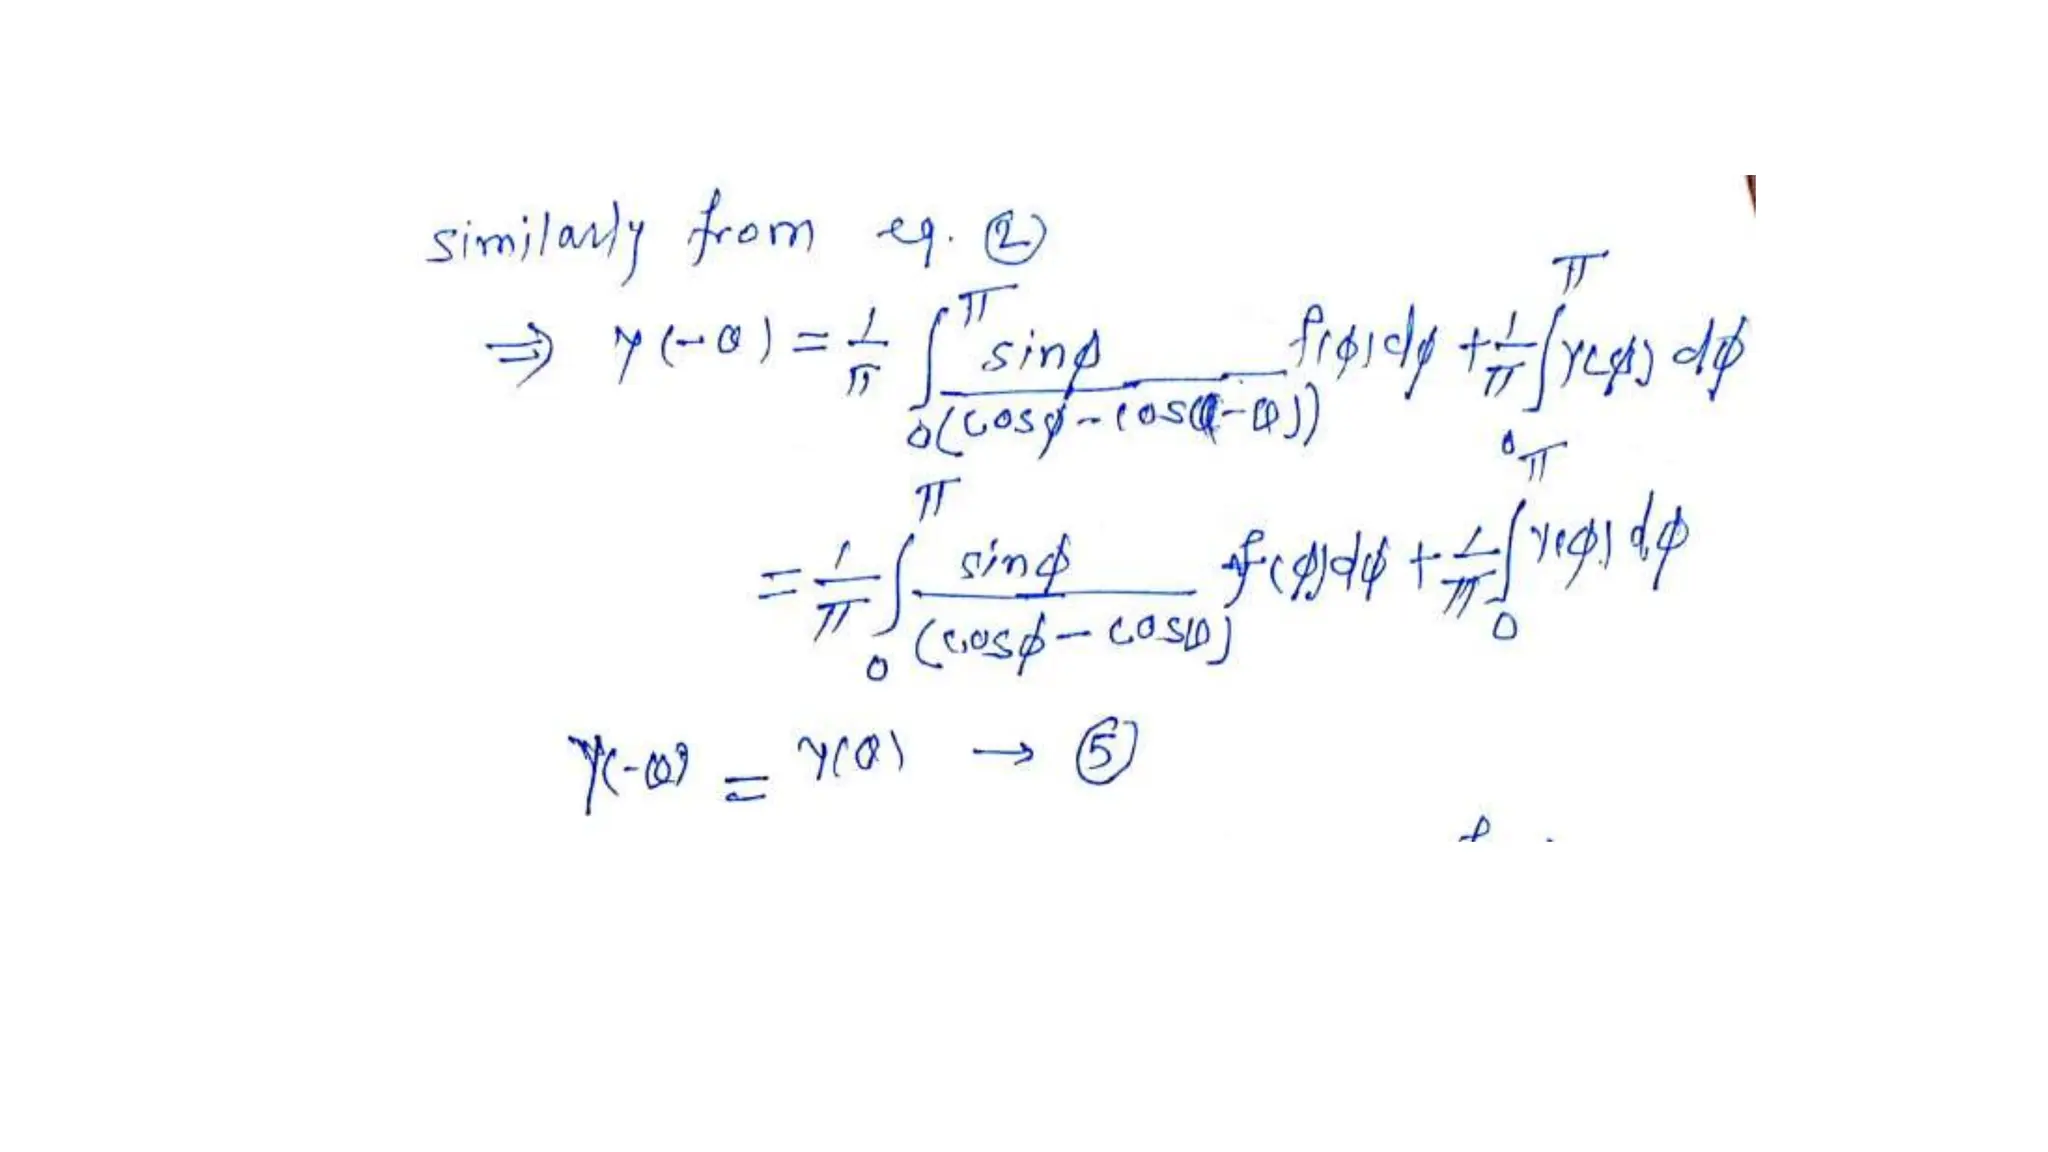 similarly from eq. ②
⇒ y(-θ) = 1/π ∫₀^π sinφ/(cosφ - cos(-θ)) f(φ)dφ + 1/π ∫₀^π y(φ) dφ
= 1/π ∫₀^π sinφ/(cosφ - cosθ) f(φ)dφ + 1/π ∫₀^π y(φ) dφ
y(-θ) = y(θ) → ⑤